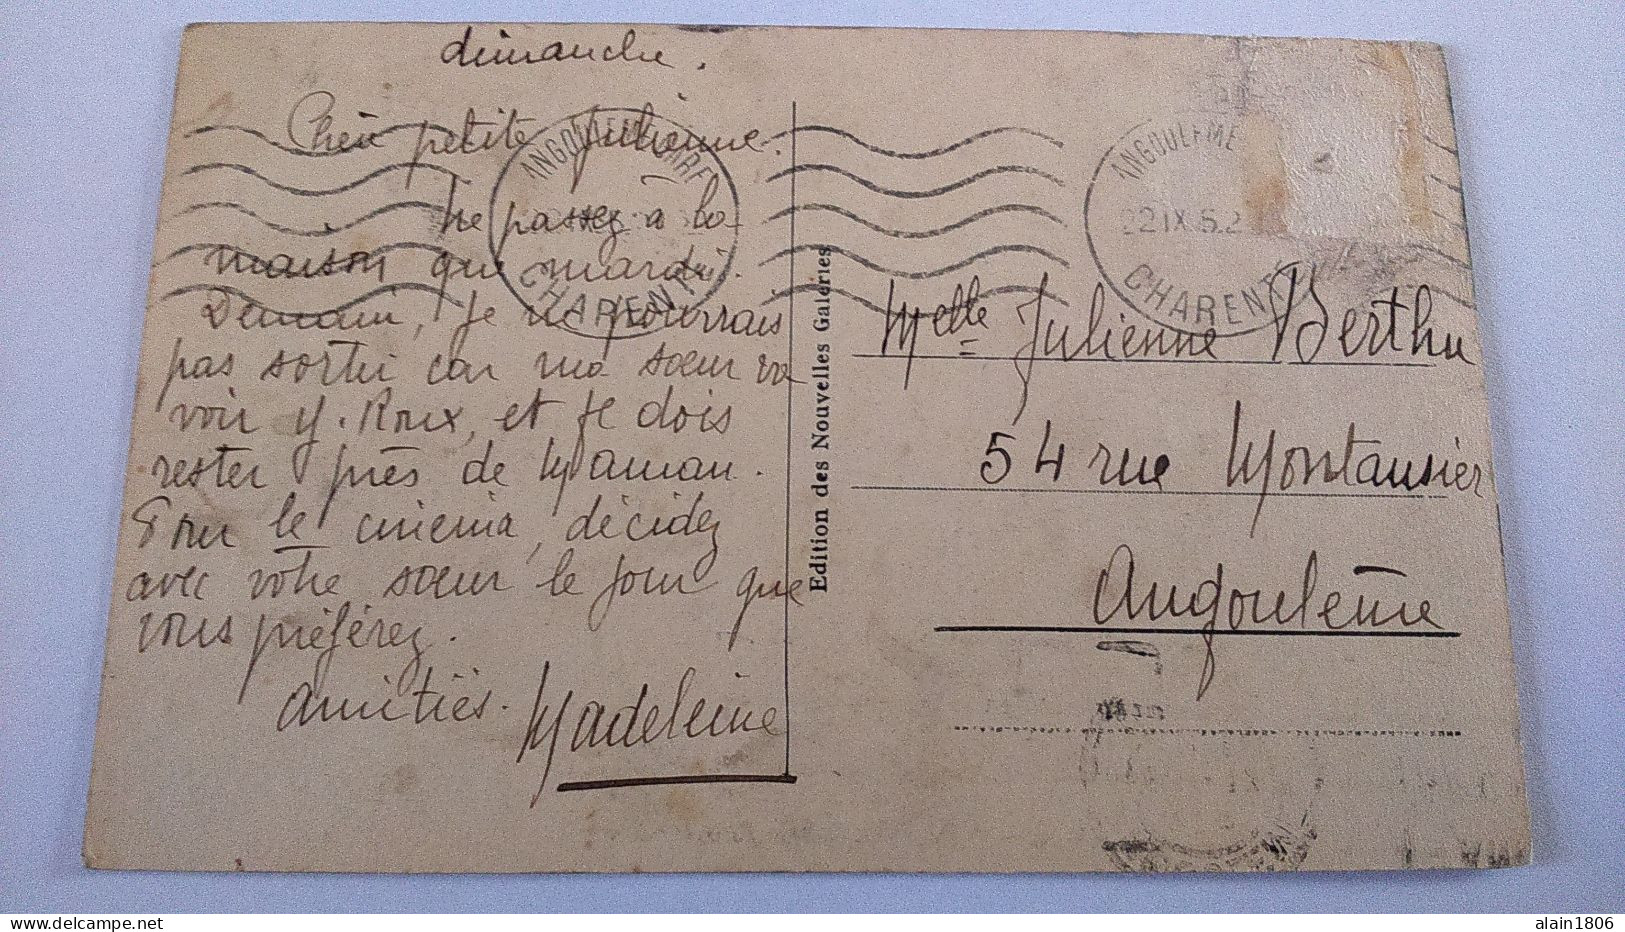 dimanche.
Chère petite Julienne.
Ne passez à la
maison que mardi.
Demain, je ne pourrais
pas sortir car ma sœur va
voir y. Roux, et je dois
rester près de Maman.
Pour le cinéma, décidez
avec votre sœur le jour que
vous préférez.
Amitiés. Madeleine
ANGOULEME GARE
CHARENTE
Edition des Nouvelles Galeries
ANGOULEME
22 IX 52
CHARENTE
Melle Julienne Berthu
54 rue Montausier
Angoulême
alain1806